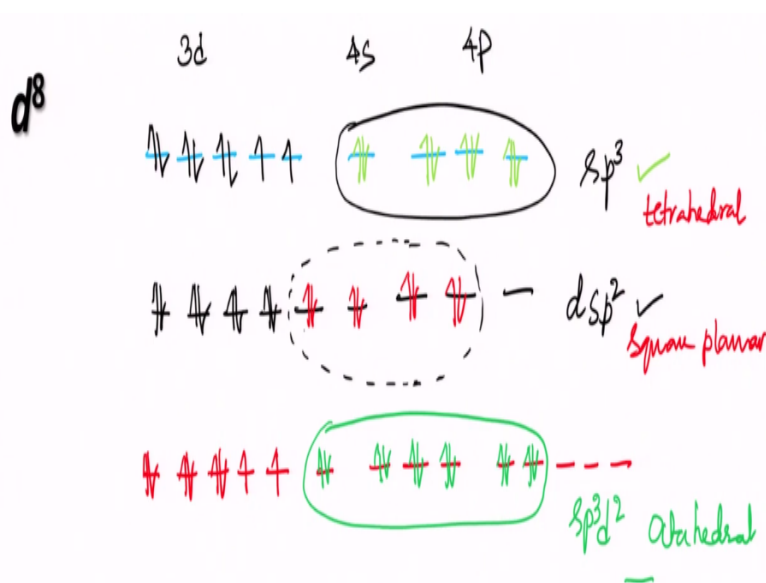 3d 4s 4p
d⁸
sp³ ✓
tetrahedral
dsp² ✓
square planar
sp³d² Octahedral